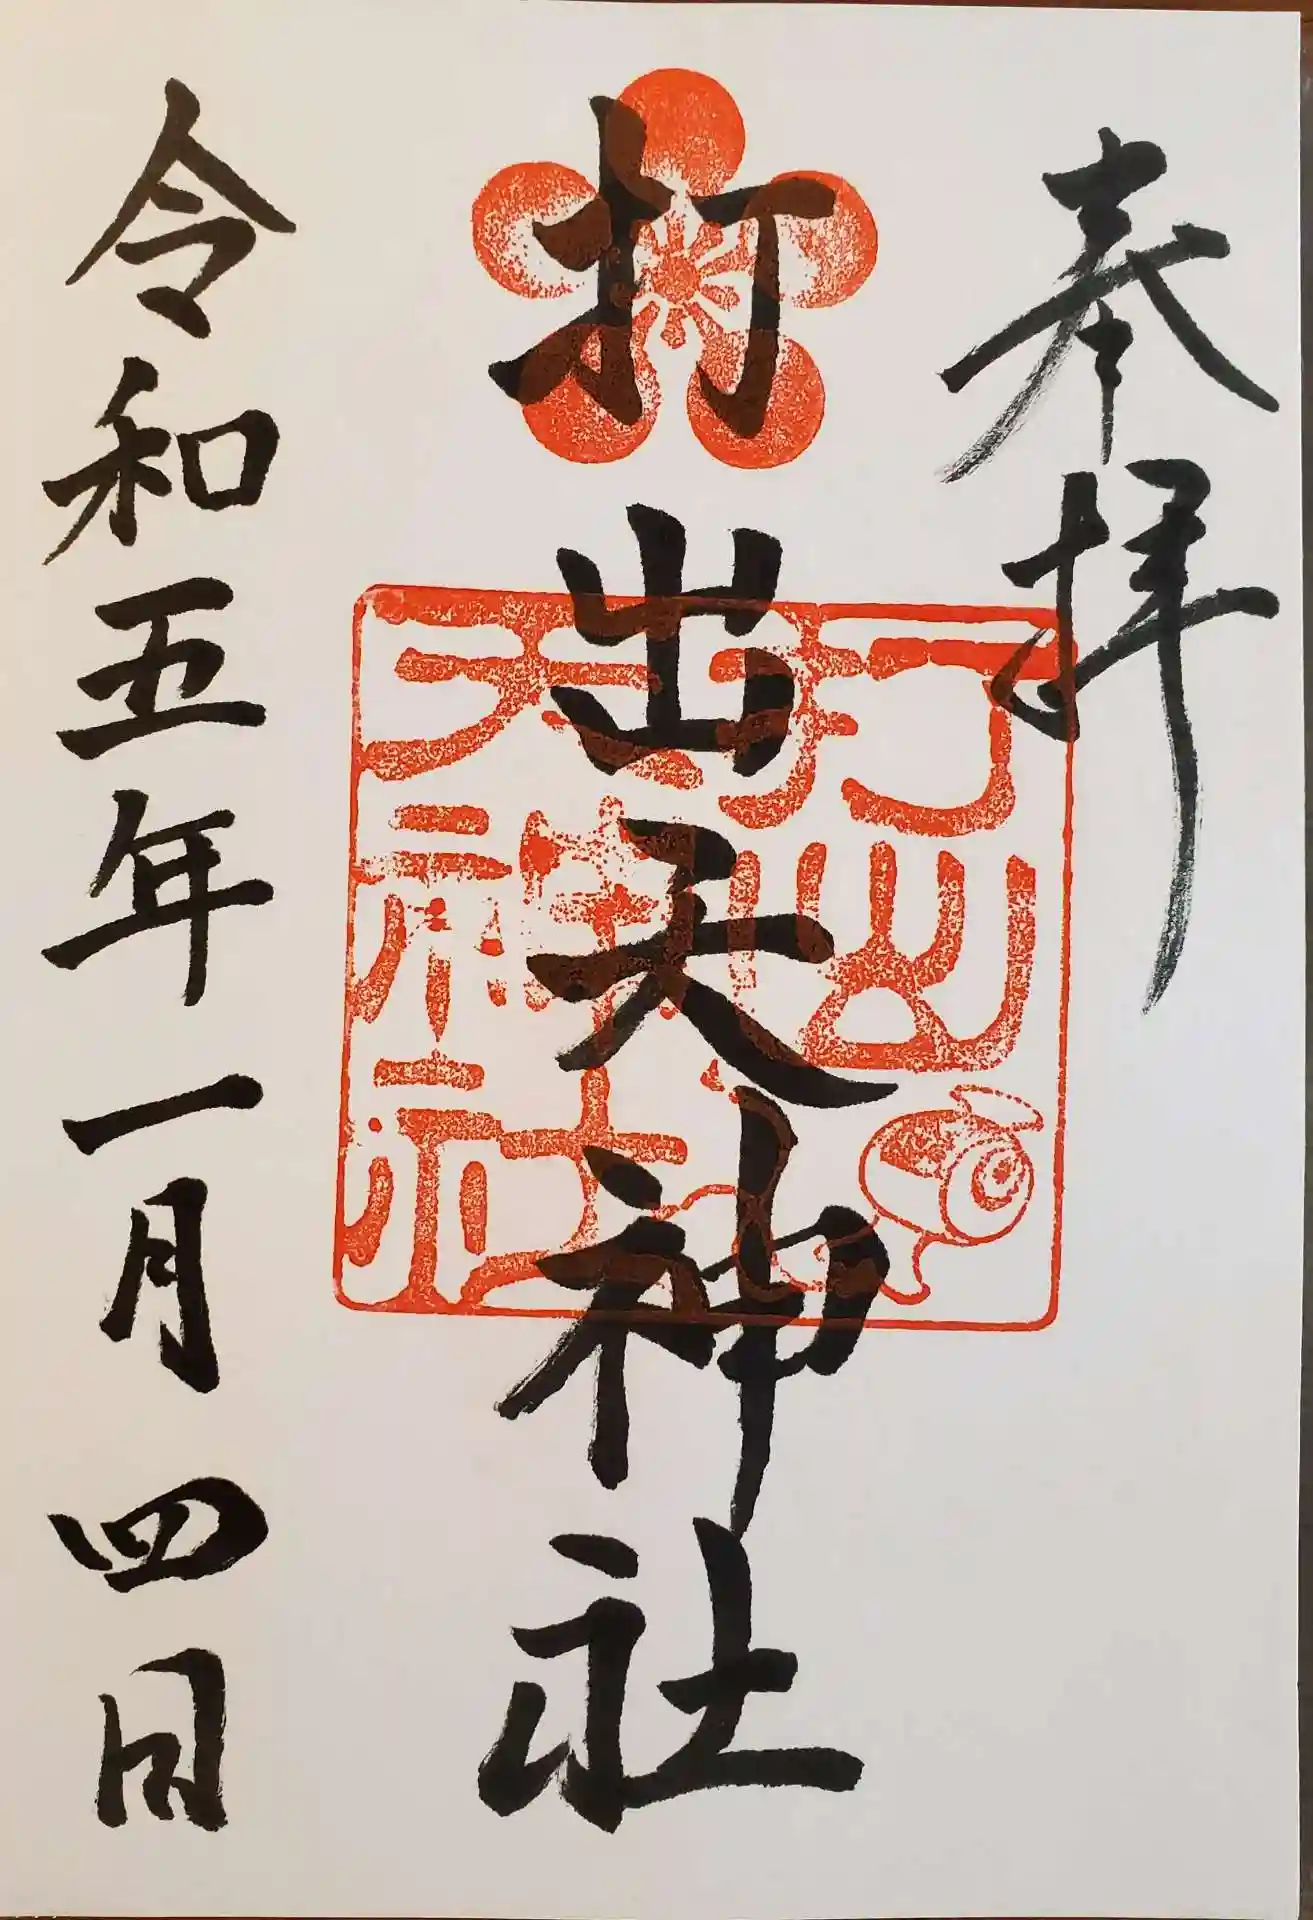 奉拝
打出天神社
打出
天神社
令和五年一月四日